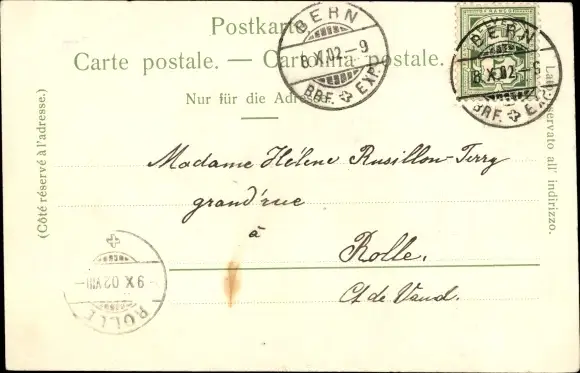 Postkarte.
Carte postale. — Cartolina postale.
Nur für die Adresse.
BERN
8.X.02.-9
BRF. EXP.
FRANCO
BERN
8.X.02.-
BRF. EXP.
(Côté réservé à l'adresse.)
Lato riservato all' indirizzo.
Madame Hélène Rusillon-Terry
grand'rue
à
Rolle.
Ct de Vaud.
-9.X.02.VIII-
ROLLE